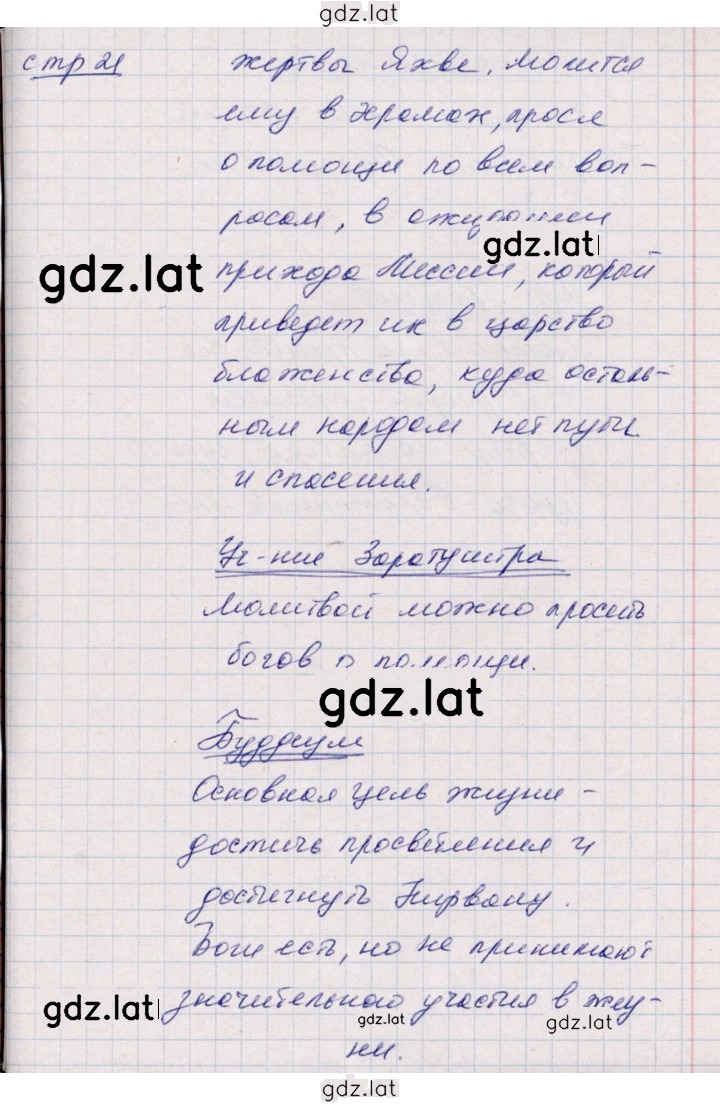 gdz.lat
стр 21
жертвы Яхве, молится
ему в храмах, прося
о помощи по всем воп-
росам, в ожидании
gdz.lat
gdz.lat
прихода Мессии, который
приведет их в царство
блаженства, куда осталь-
ным народам нет пути
и спасения.
Уч-ние Заратуштра
Молитвой можно просить
богов о помощи.
gdz.lat
Буддизм
Основная цель жизни -
достичь просветления и
достигнуть Нирвану.
Боги есть, но не принимают
значительного участия в жиз-
gdz.lat
gdz.lat
gdz.lat
ни.
gdz.lat